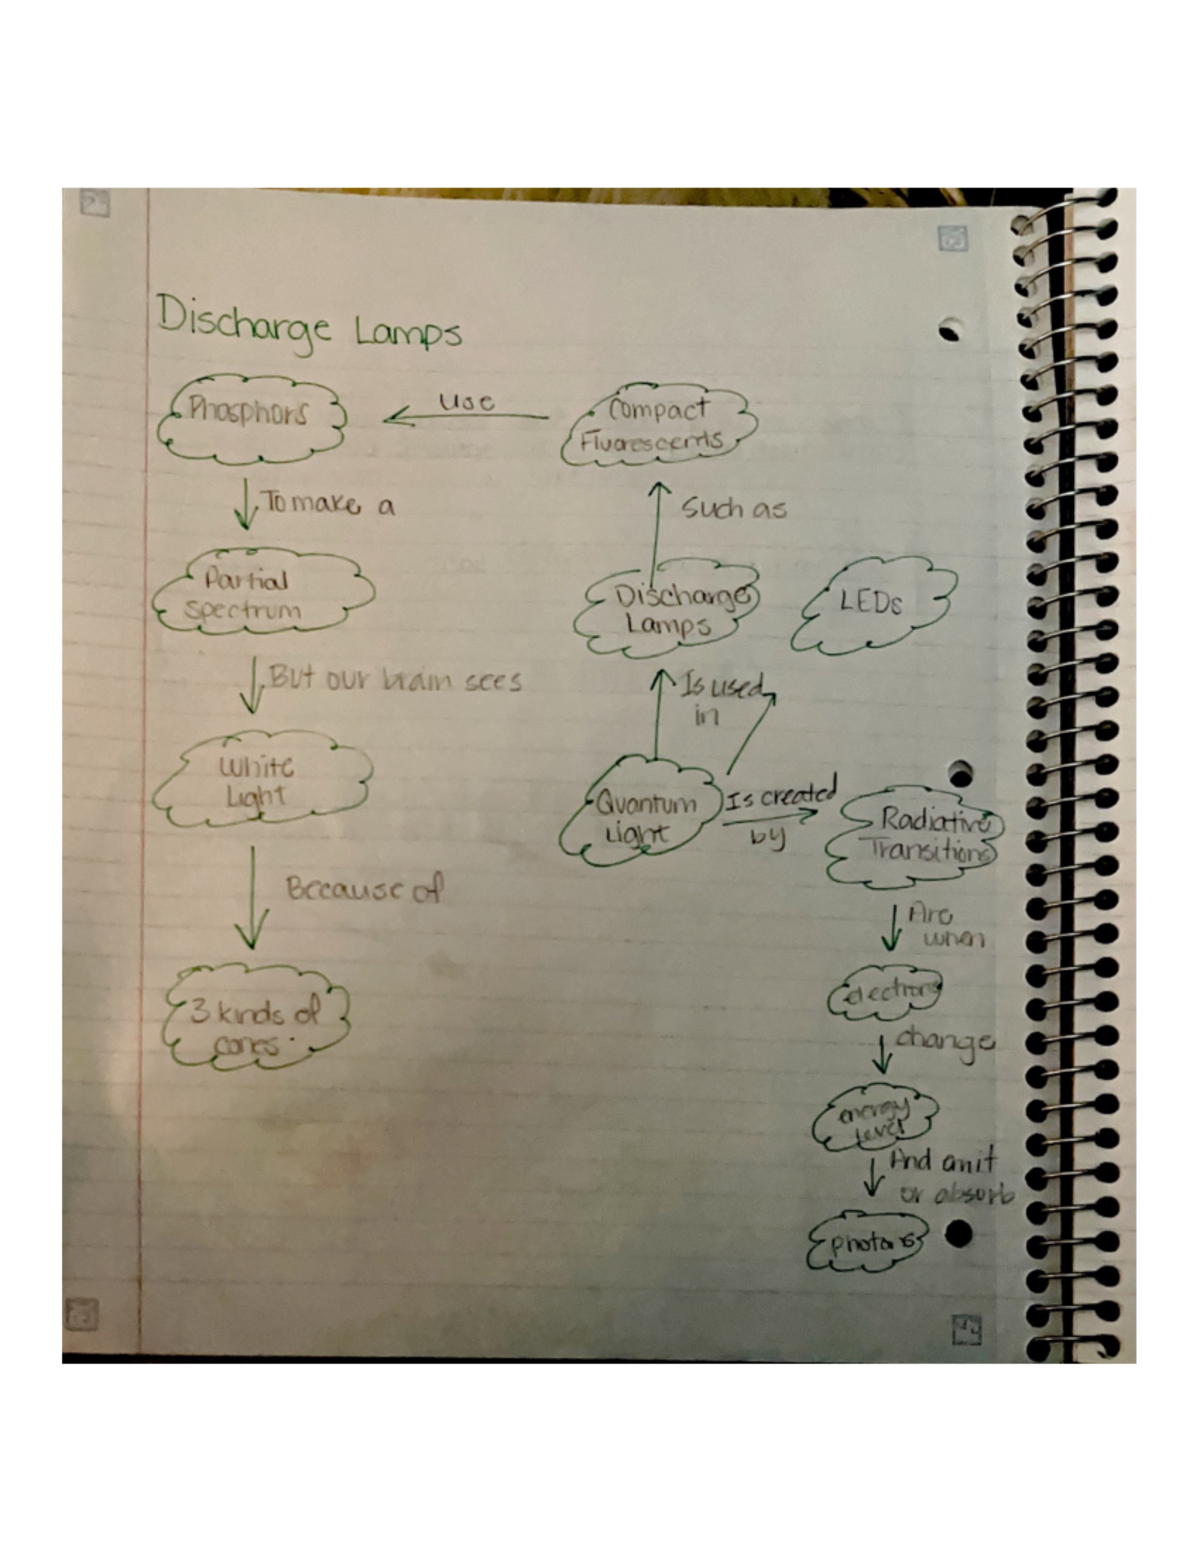 Discharge Lamps
Phosphors
use
Compact
Fluorescents
To make a
such as
Partial
spectrum
Discharge
Lamps
LEDs
But our brain sees
Is used
in
White
Light
Quantum
Light
Is created
by
Radiative
Transitions
Because of
Are
when
3 kinds of
cones.
electrons
change
energy
level
And emit
or absorb
photons